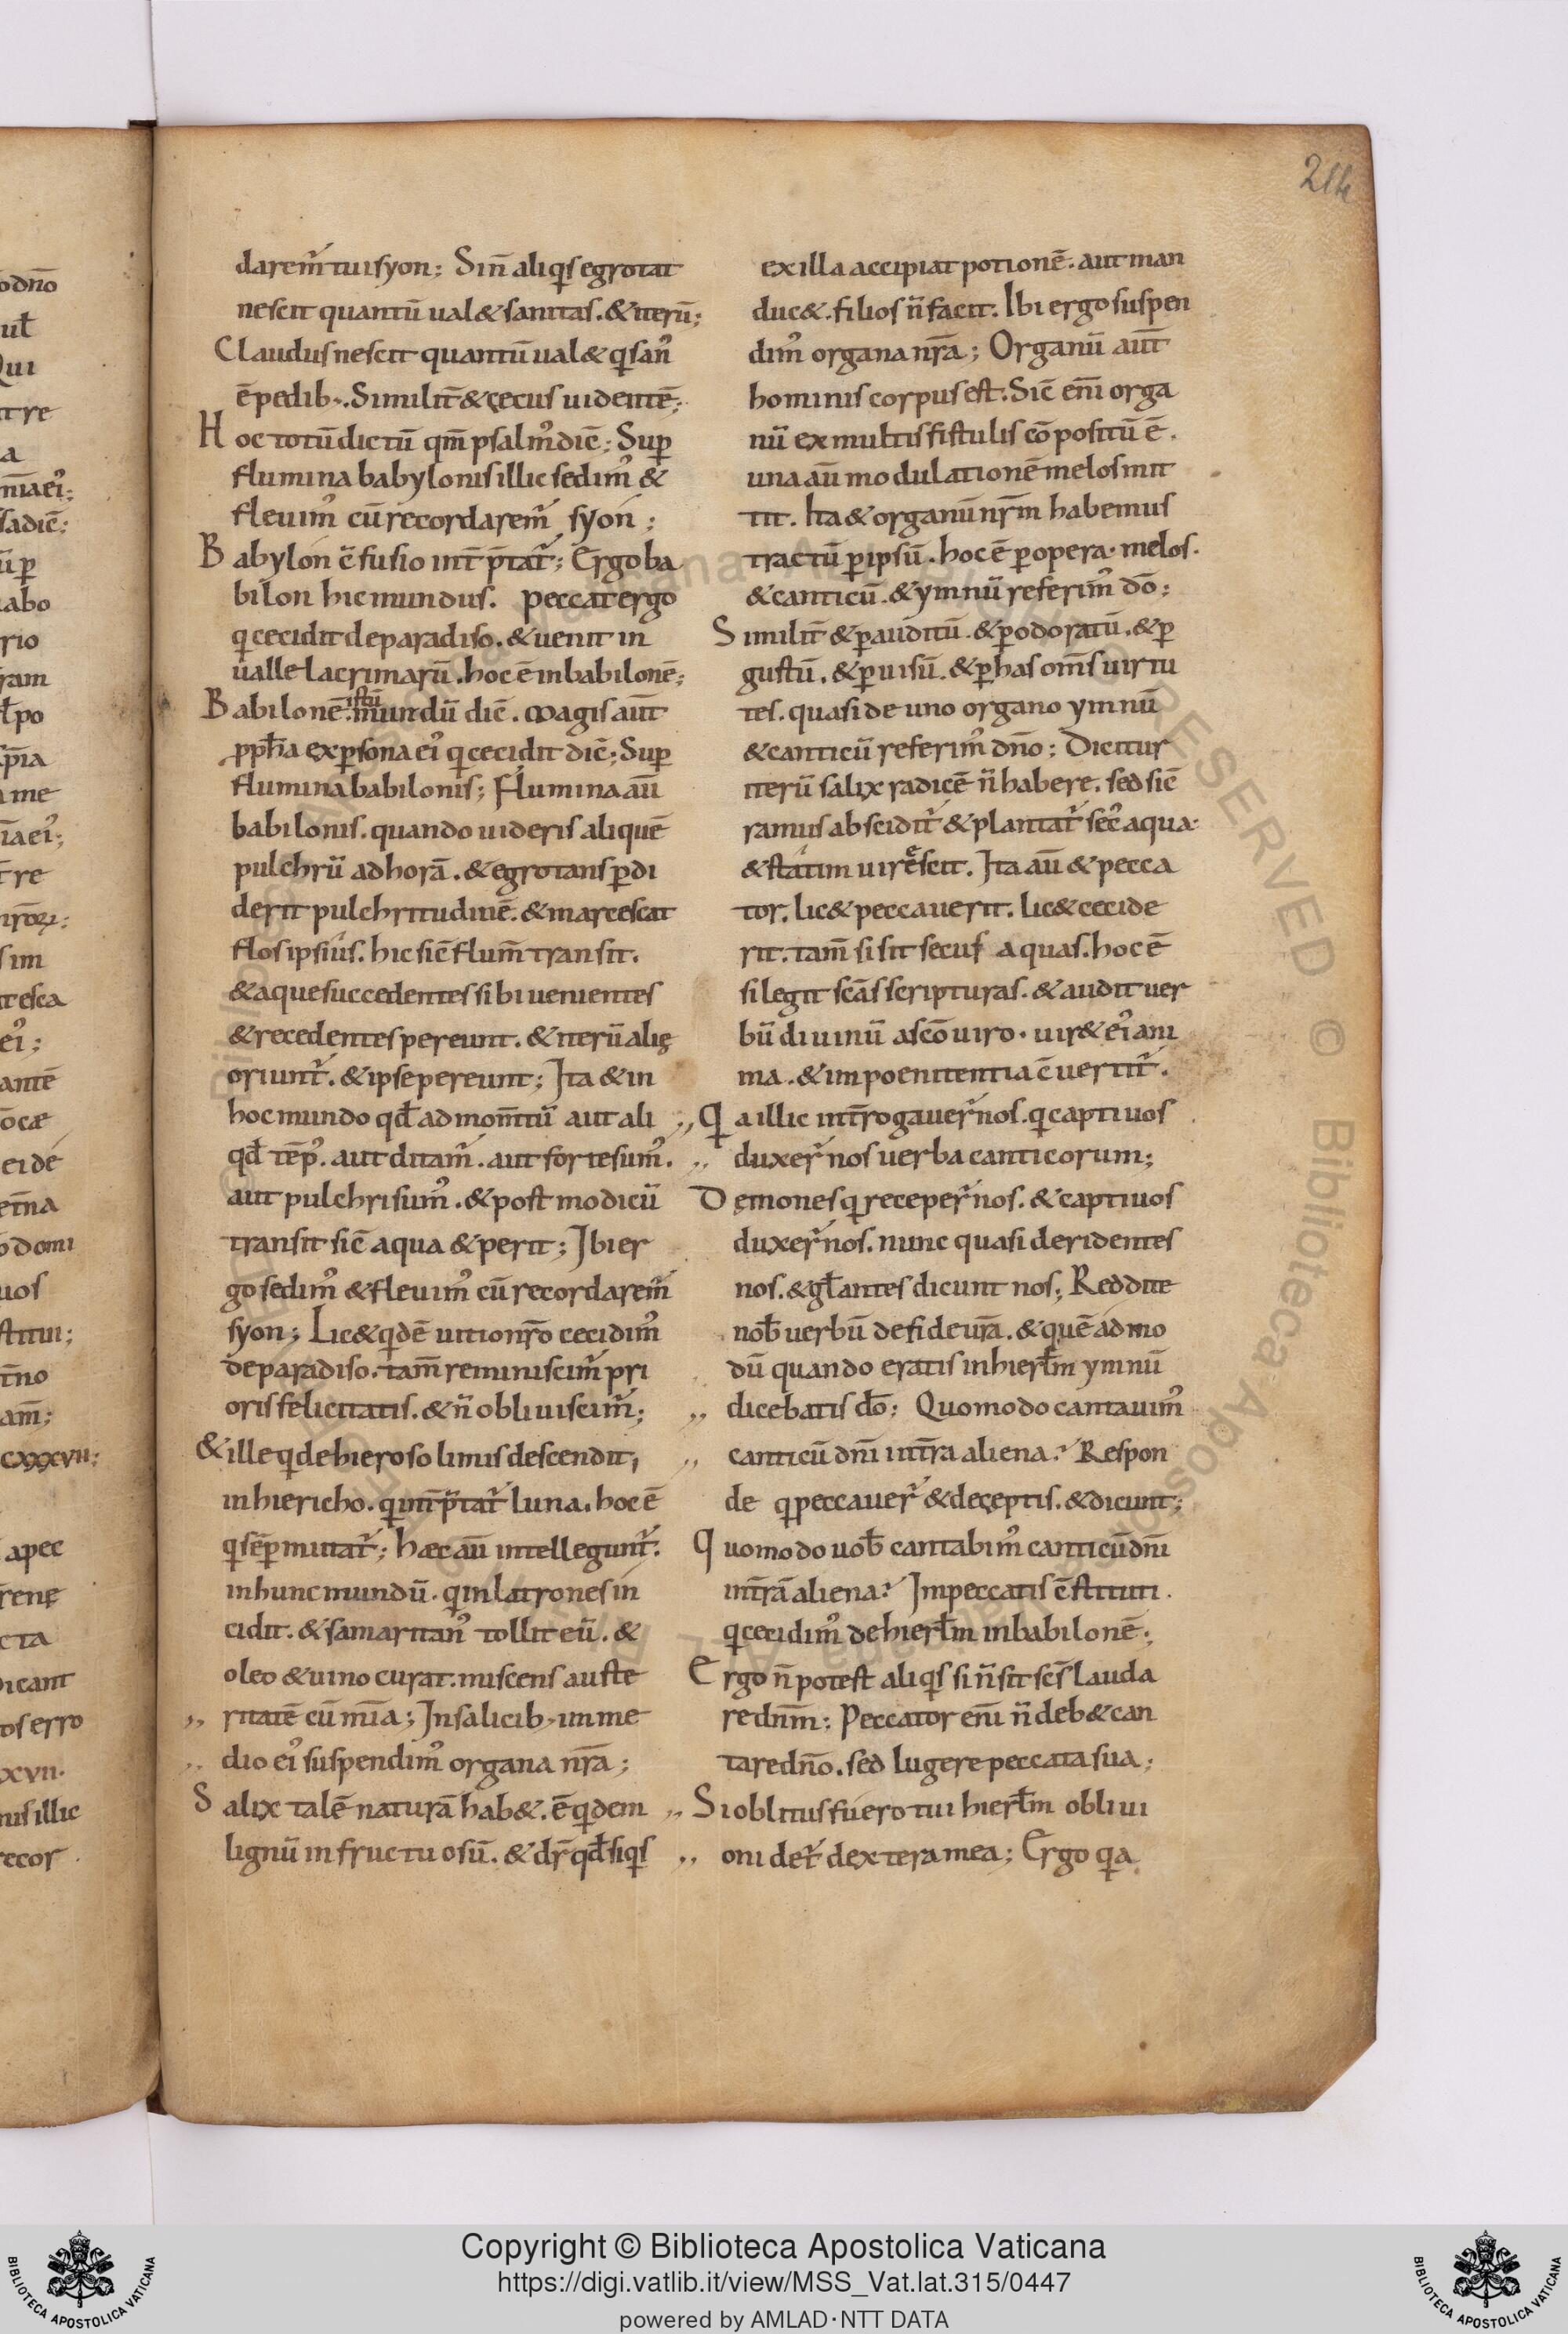 214
darem᷒ tui syon; Sin̄ aliqͥs egrotat
nescit quantū ual& sanitas. & iterū;
Claudus nescit quantū ual& qͥ sanꝰ
ē pedib·. Similit̄ & cęcus uidentē;
Hoc totū dictū qm̄ psalmꝰ dic̄; Sup̱
flumina babylonis illic sedimꝰ &
fleuimꝰ cū recordarem᷒ syon;
Babylon c̄fusio int̄p̄tat᷒; Ergo ba
bilon hic mundus. peccat ergo
qͥ cecidit de paradiso. & uenit in
ualle lacrimarū. hoc ē in babilonē;
Babilonē istū mundū dic̄. magis aūt
ꝓph̄a ex ꝑsona eiꝰ qͥ cecidit dic̄; Suꝑ
flumina babilonis; Flumina aū
babilonis. quando uideris aliquē
pulchrū ad horā. & egrotans ꝑdi
derit pulchritudinē. & marcescat
flos ipsius. hic sic̄ flum̄ transit.
& aque succedentes sibi uenientes
& recedentes pereunt. & iterū alię
oriunt᷒. & ipse pereunt; Ita & in
hoc mundo qd̄ ad mom̄tū aut ali
qd̄ tēpꝰ. aut ditam᷒. aut fortes sumꝰ.
aut pulchri sumꝰ. & post modicū
transit sic̄ aqua & perit; Ibi er
go sedimꝰ & fleuimꝰ cū recordarem᷒
syon; Lic& qͥdē uitio nr̄o cecidimꝰ
de paradiso. tam̄ reminiscim᷒ pri
oris felicitatis. & n̄ obliuiscim᷒;
& ille qͥ de hierosolimis descendit;
in hiericho. qͥ int̄p̄tat᷒ luna. hoc ē
qͥ sēꝑ mutat᷒; hæc aū intellegunt᷒.
in hunc mundū. qͥ in latrones in
cidit. & samaritanꝰ tollit eū. &
oleo & uino curat. miscens auste
,, ritatē cū mīa; In salicib; in me
,, dio eiꝰ suspendimꝰ organa nr̄a;
Salix talē naturā hab&. ē qͥdem
lignū infructuosū. & dr̄ qd̄ si qͥs
ex illa accipiat potionē. aut man
duc&. filios n̄ facit. Ibi ergo suspen
dimꝰ organa nr̄a; Organū aūt
hominis corpus est. Sic̄ eni̅ orga
nū ex multis fistulis cōpositū ē.
una aū modulationē melos mit
tit. Ita & organū nr̄m habemus
tractū ꝑ ipsū. hoc ē ꝑ opera. melos.
& canticū. & ymnū referimꝰ dō;
Similit̄ & ꝑ auditū. & ꝑ odoratū. & ꝑ
gustū. & ꝑ uisū. & ꝑ has om̄s uirtu
tes. quasi de uno organo ymnū
& canticū referimꝰ dn̄o; Dicitur
iterū salix radicē n̄ habere. sed sic̄
ramus abscidit᷒ & plantat᷒ secꝰ aqua.
& statim uirescit. Ita aū & pecca
tor. lic& peccauerit. lic& cecide
rit. tam̄ si sit secus aquas. hoc ē
si legit sc̄as scripturas. & audit uer
bū diuinū a sc̄o uiro. uir& eiꝰ ani
ma. & in poenitentia c̄uertit᷒.
,, Qͥa illic int̄rogauer̄ nos. qͥ captiuos
,, duxer̄ nos uerba canticorum;
Dęmones qͥ receper̄ nos. & captiuos
duxer̄ nos. nunc quasi deridentes
nos. & gl̄antes dicunt nos; Reddite
nob̄ uerbū de fide ur̄a. & quē admo
dū quando eratis in hierl̄m ymnū
,, dicebatis dō; Quomodo cantauimꝰ
,, canticū dn̄i in t̄ra aliena? Respon
de qͥ peccauer̄ & deceptis. & dicunt;
Quomodo uob̄ cantabimꝰ canticū dn̄i
in t̄rā aliena? In peccatis c̄stituti.
qͥ cecidimꝰ de hierl̄m in babilonē;
Ergo n̄ potest aliqͥs si n̄ sit sc̄s lauda
re dn̄m; Peccator eni̅ n̄ deb& can
tare dn̄o. sed lugere peccata sua;
,, Si oblitus fuero tui hierl̄m obliui
,, oni det᷒ dextera mea; Ergo qͥa
Copyright © Biblioteca Apostolica Vaticana
https://digi.vatlib.it/view/MSS_Vat.lat.315/0447
powered by AMLAD·NTT DATA